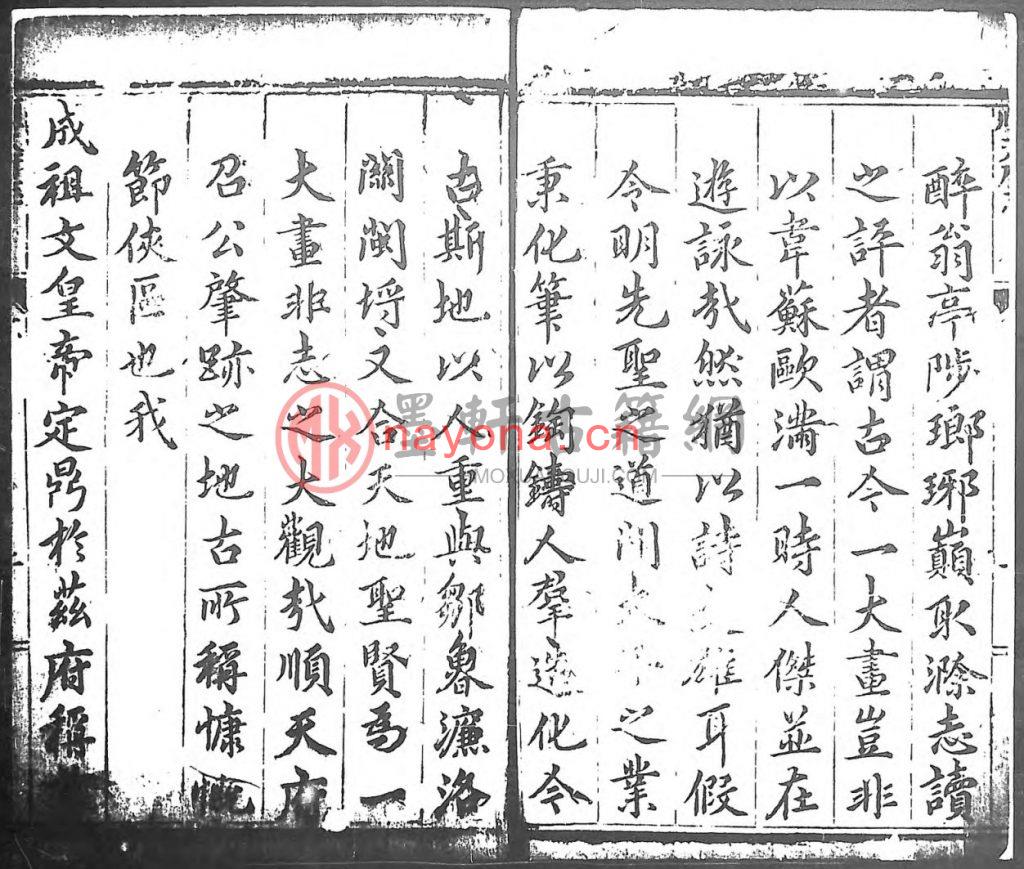 醉翁亭陟瑯琊巔取滁志讀
之評者謂古今一大畫豈非
以韋蘇歐瀟一時人傑並在
遊詠㦲然猶以詩雄耳假
令明先聖之道開之業
秉化筆以鈞鑄人羣遂化今
古斯地以人重與鄒魯濂洛
關閩埒又合天地聖賢為一
大畫非志之大觀㦲順天府
召公肇跡之地古所稱慷慨
節俠區也我
成祖文皇帝定鼎於茲府稱
墨軒古籍網
nayona.cn